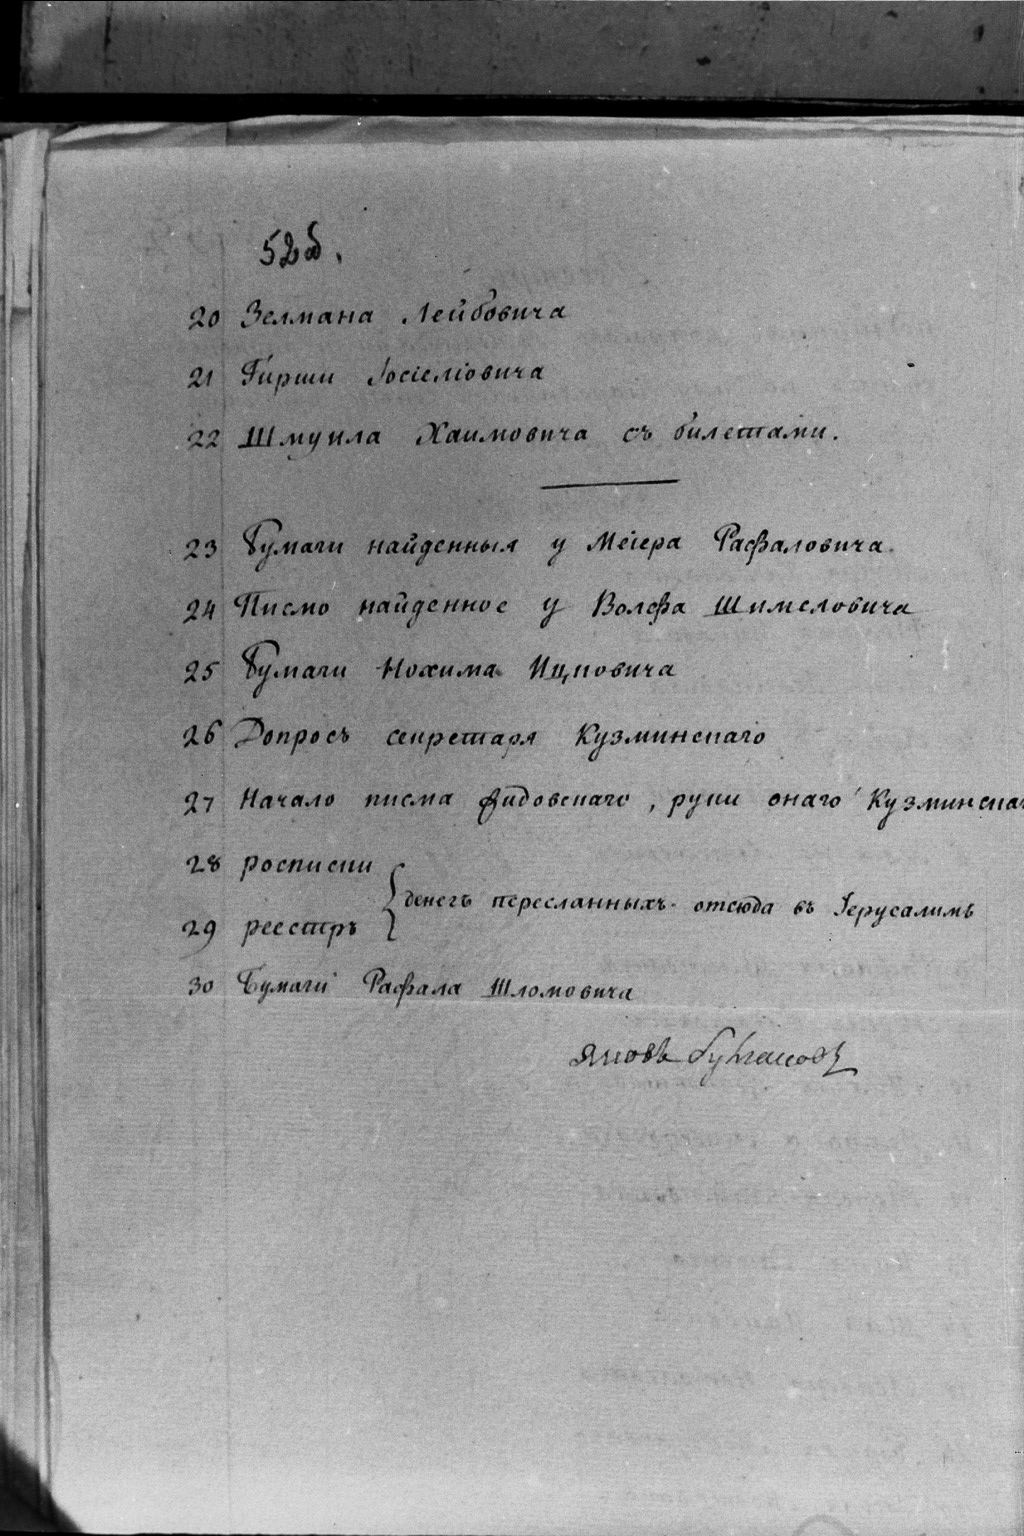 52об.
20 Зелмана Лейбовича
21 Гирши Іосіеліовича
22 Шмуила Хаимовича съ билетами.
23 Бумаги найденныя у Меіера Рафаловича
24 Писмо найденное у Волфа Шимеловича
25 Бумаги Нохима Ицковича
26 Допросъ секретаря Кузминскаго
27 Начало писма жидовскаго, руки онаго Кузминскаг
28 росписки
денегъ пересланныхъ отсюда въ Іерусалимъ
29 реестръ
30 Бумаги Рафала Шломовича
Яковъ